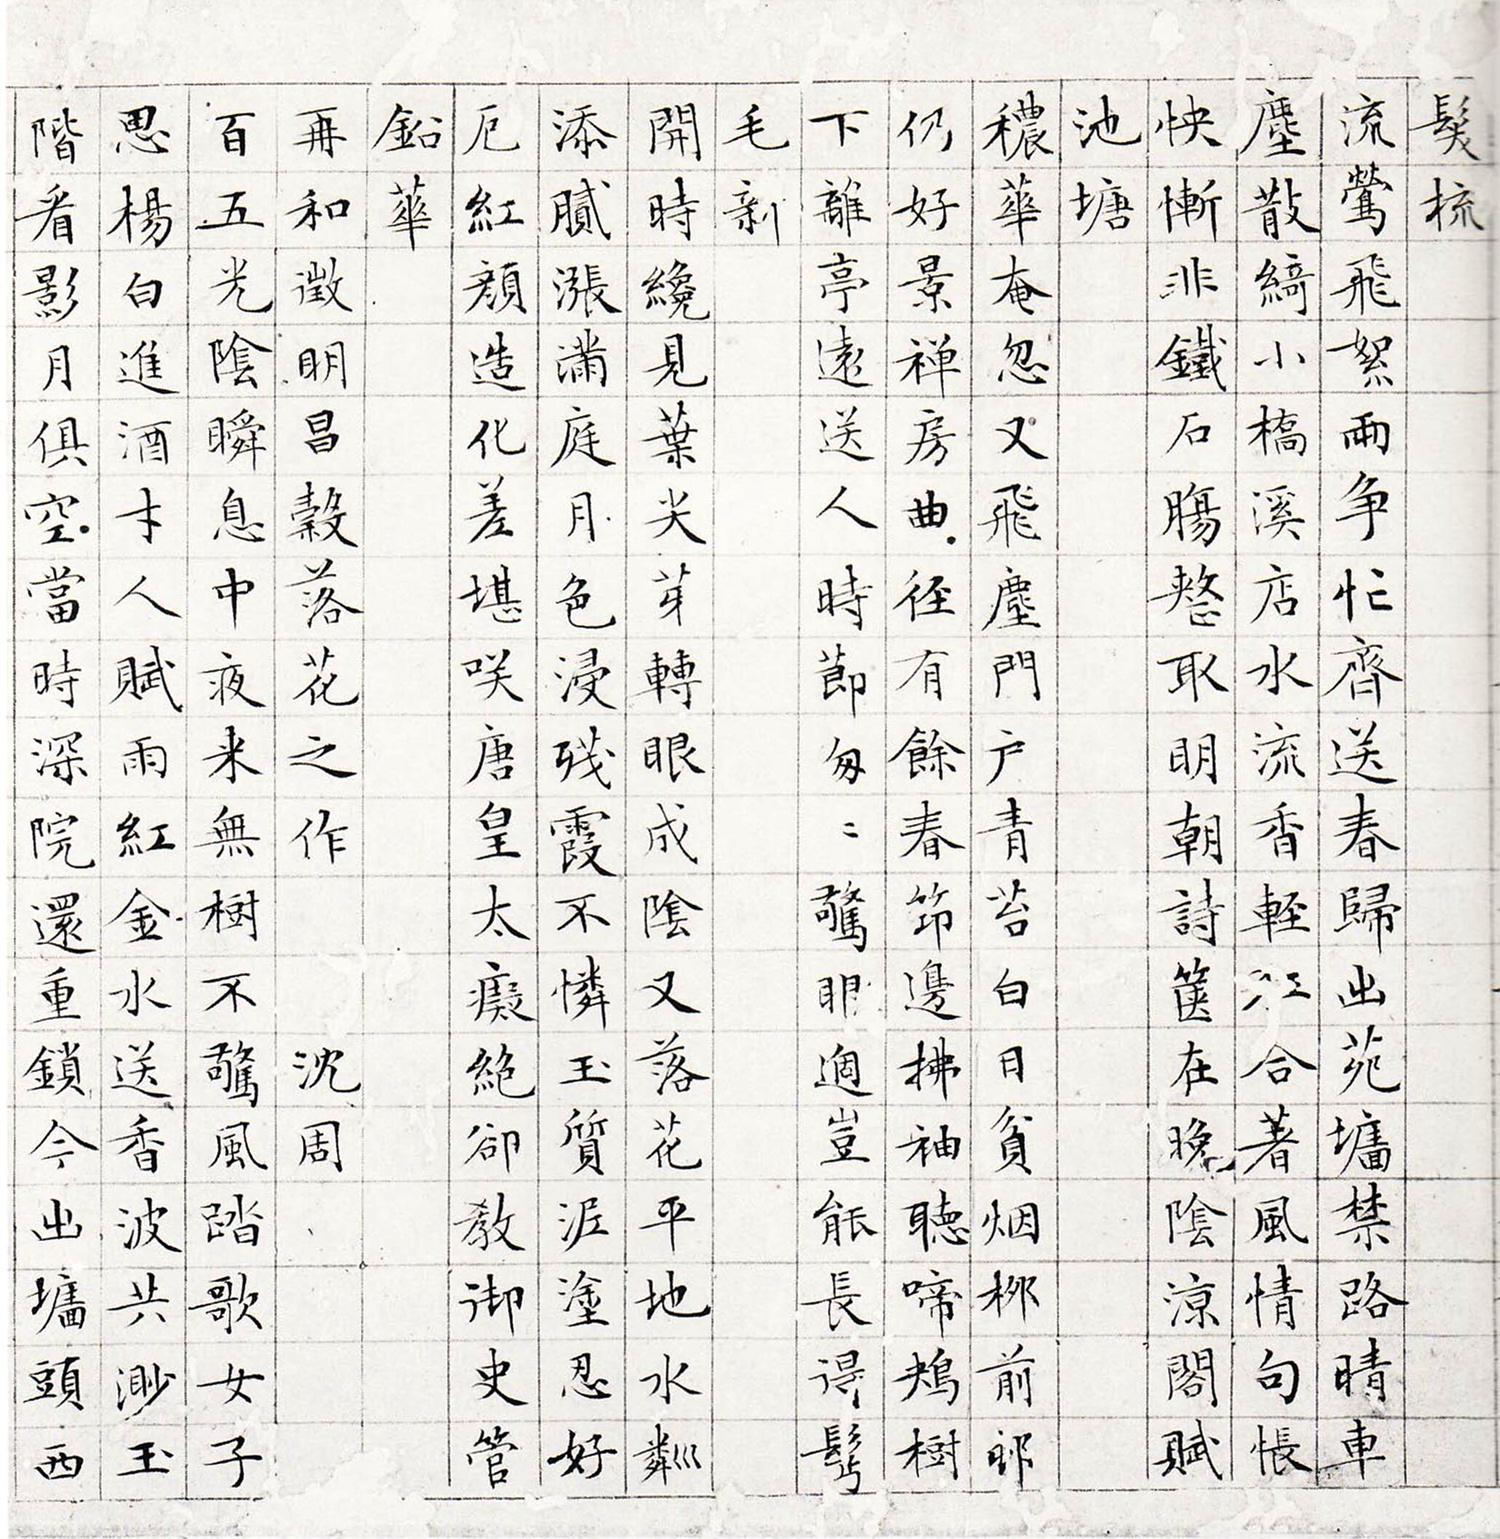 髮梳
流鶯飛絮兩争忙齊送春歸出苑墻禁路晴車
塵散綺小橋溪店水流香輕紅合著風情句悵
怏慚非鐵石腸整取明朝詩篋在晚陰涼閣賦
池塘
穠華奄忽又飛塵門户青苔白日貧烟柳前邨
仍好景禅房曲徑有餘春笻邊拂袖聽啼鴂樹
下離亭遠送人時節匆〻驚眼適豈能長得鬢
毛新
開時纔見葉尖芽轉眼成陰又落花平地水粼
添膩漲满庭月色浸殘霞不憐玉質泥塗忍好
厄紅顔造化差堪咲唐皇太癡絶卻教御史管
鉛華
再和徵明昌穀落花之作 沈周
百五光陰瞬息中夜来無樹不驚風踏歌女子
思楊白進酒才人賦雨紅金水送香波共渺玉
階看影月俱空當時深院還重鎖今出墻頭西